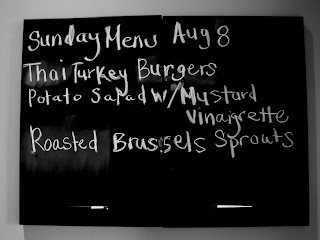 Sunday Menu Aug 8
Thai Turkey Burgers
Potato Salad w/ Mustard
Vinaigrette
Roasted Brussels Sprouts